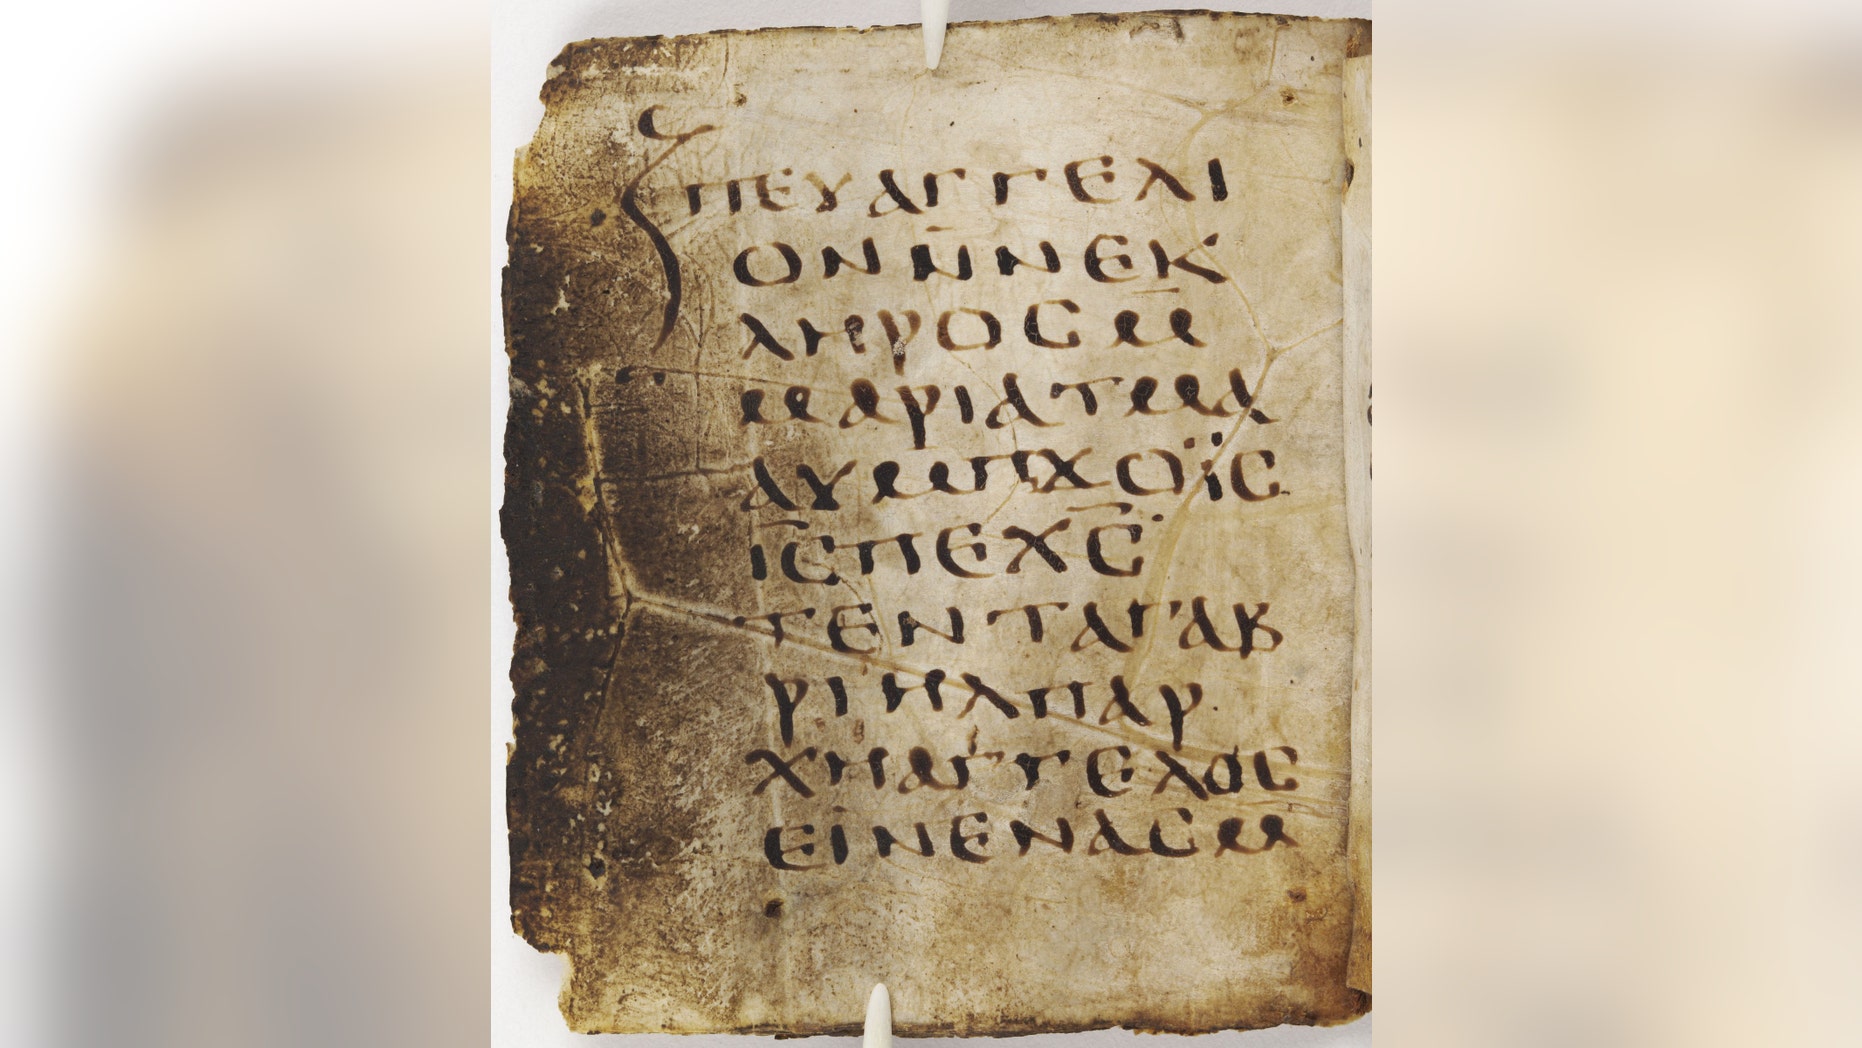 ⲡⲉⲩⲁⲅⲅⲉⲗⲓ
ⲟⲛⲛ̄ⲛⲉⲕ
ⲗⲏⲣⲟⲥⲙ̄
ⲙⲁⲣⲓⲁⲧⲙⲁ
ⲁⲩⲙⲡϫⲟⲓ̈ⲥ
ⲓ̄ⲥ̄ⲡⲉⲭ̄ⲥ̄
ⲧⲉⲛⲧⲁⲅⲁⲃ
ⲣⲓⲏⲗⲡⲁⲣ
ⲭⲏⲁⲅⲅⲉⲗⲟⲥ
ⲉⲓⲛⲉⲛⲁⲥⲙ̄